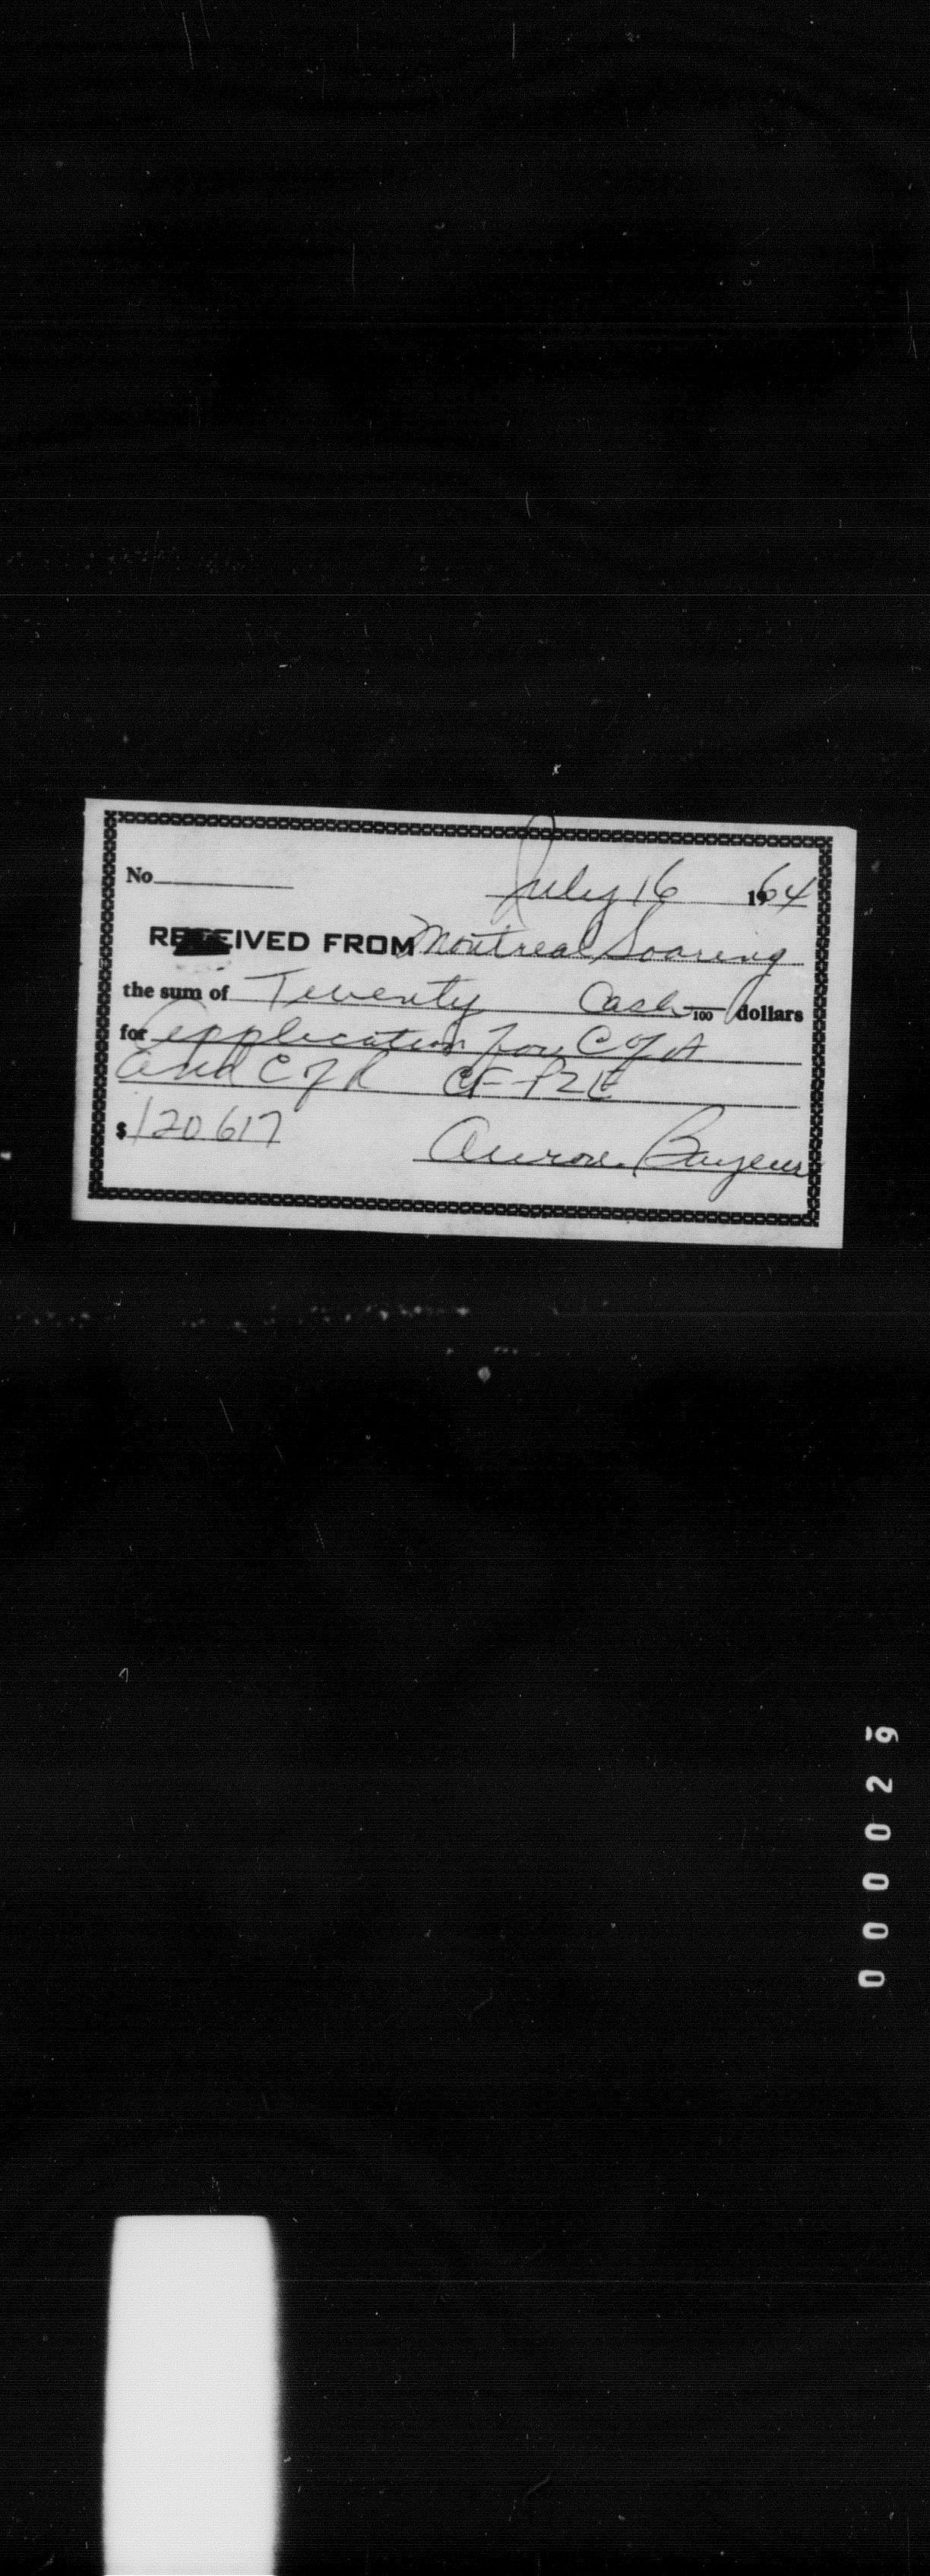 No
July 16 1964
RECEIVED FROM Montreal Soaring
the sum of Twenty Cash 100 dollars
for application for C of A
and C of R CF-PZE
$ 120617
000029